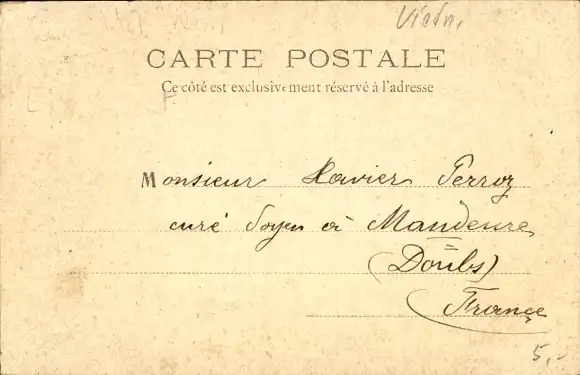 Vietn.
CARTE POSTALE
Ce côté est exclusivement réservé à l'adresse
Monsieur Xavier Perroz
curé Doyen à Mandeure
(Doubs)
France
5,-